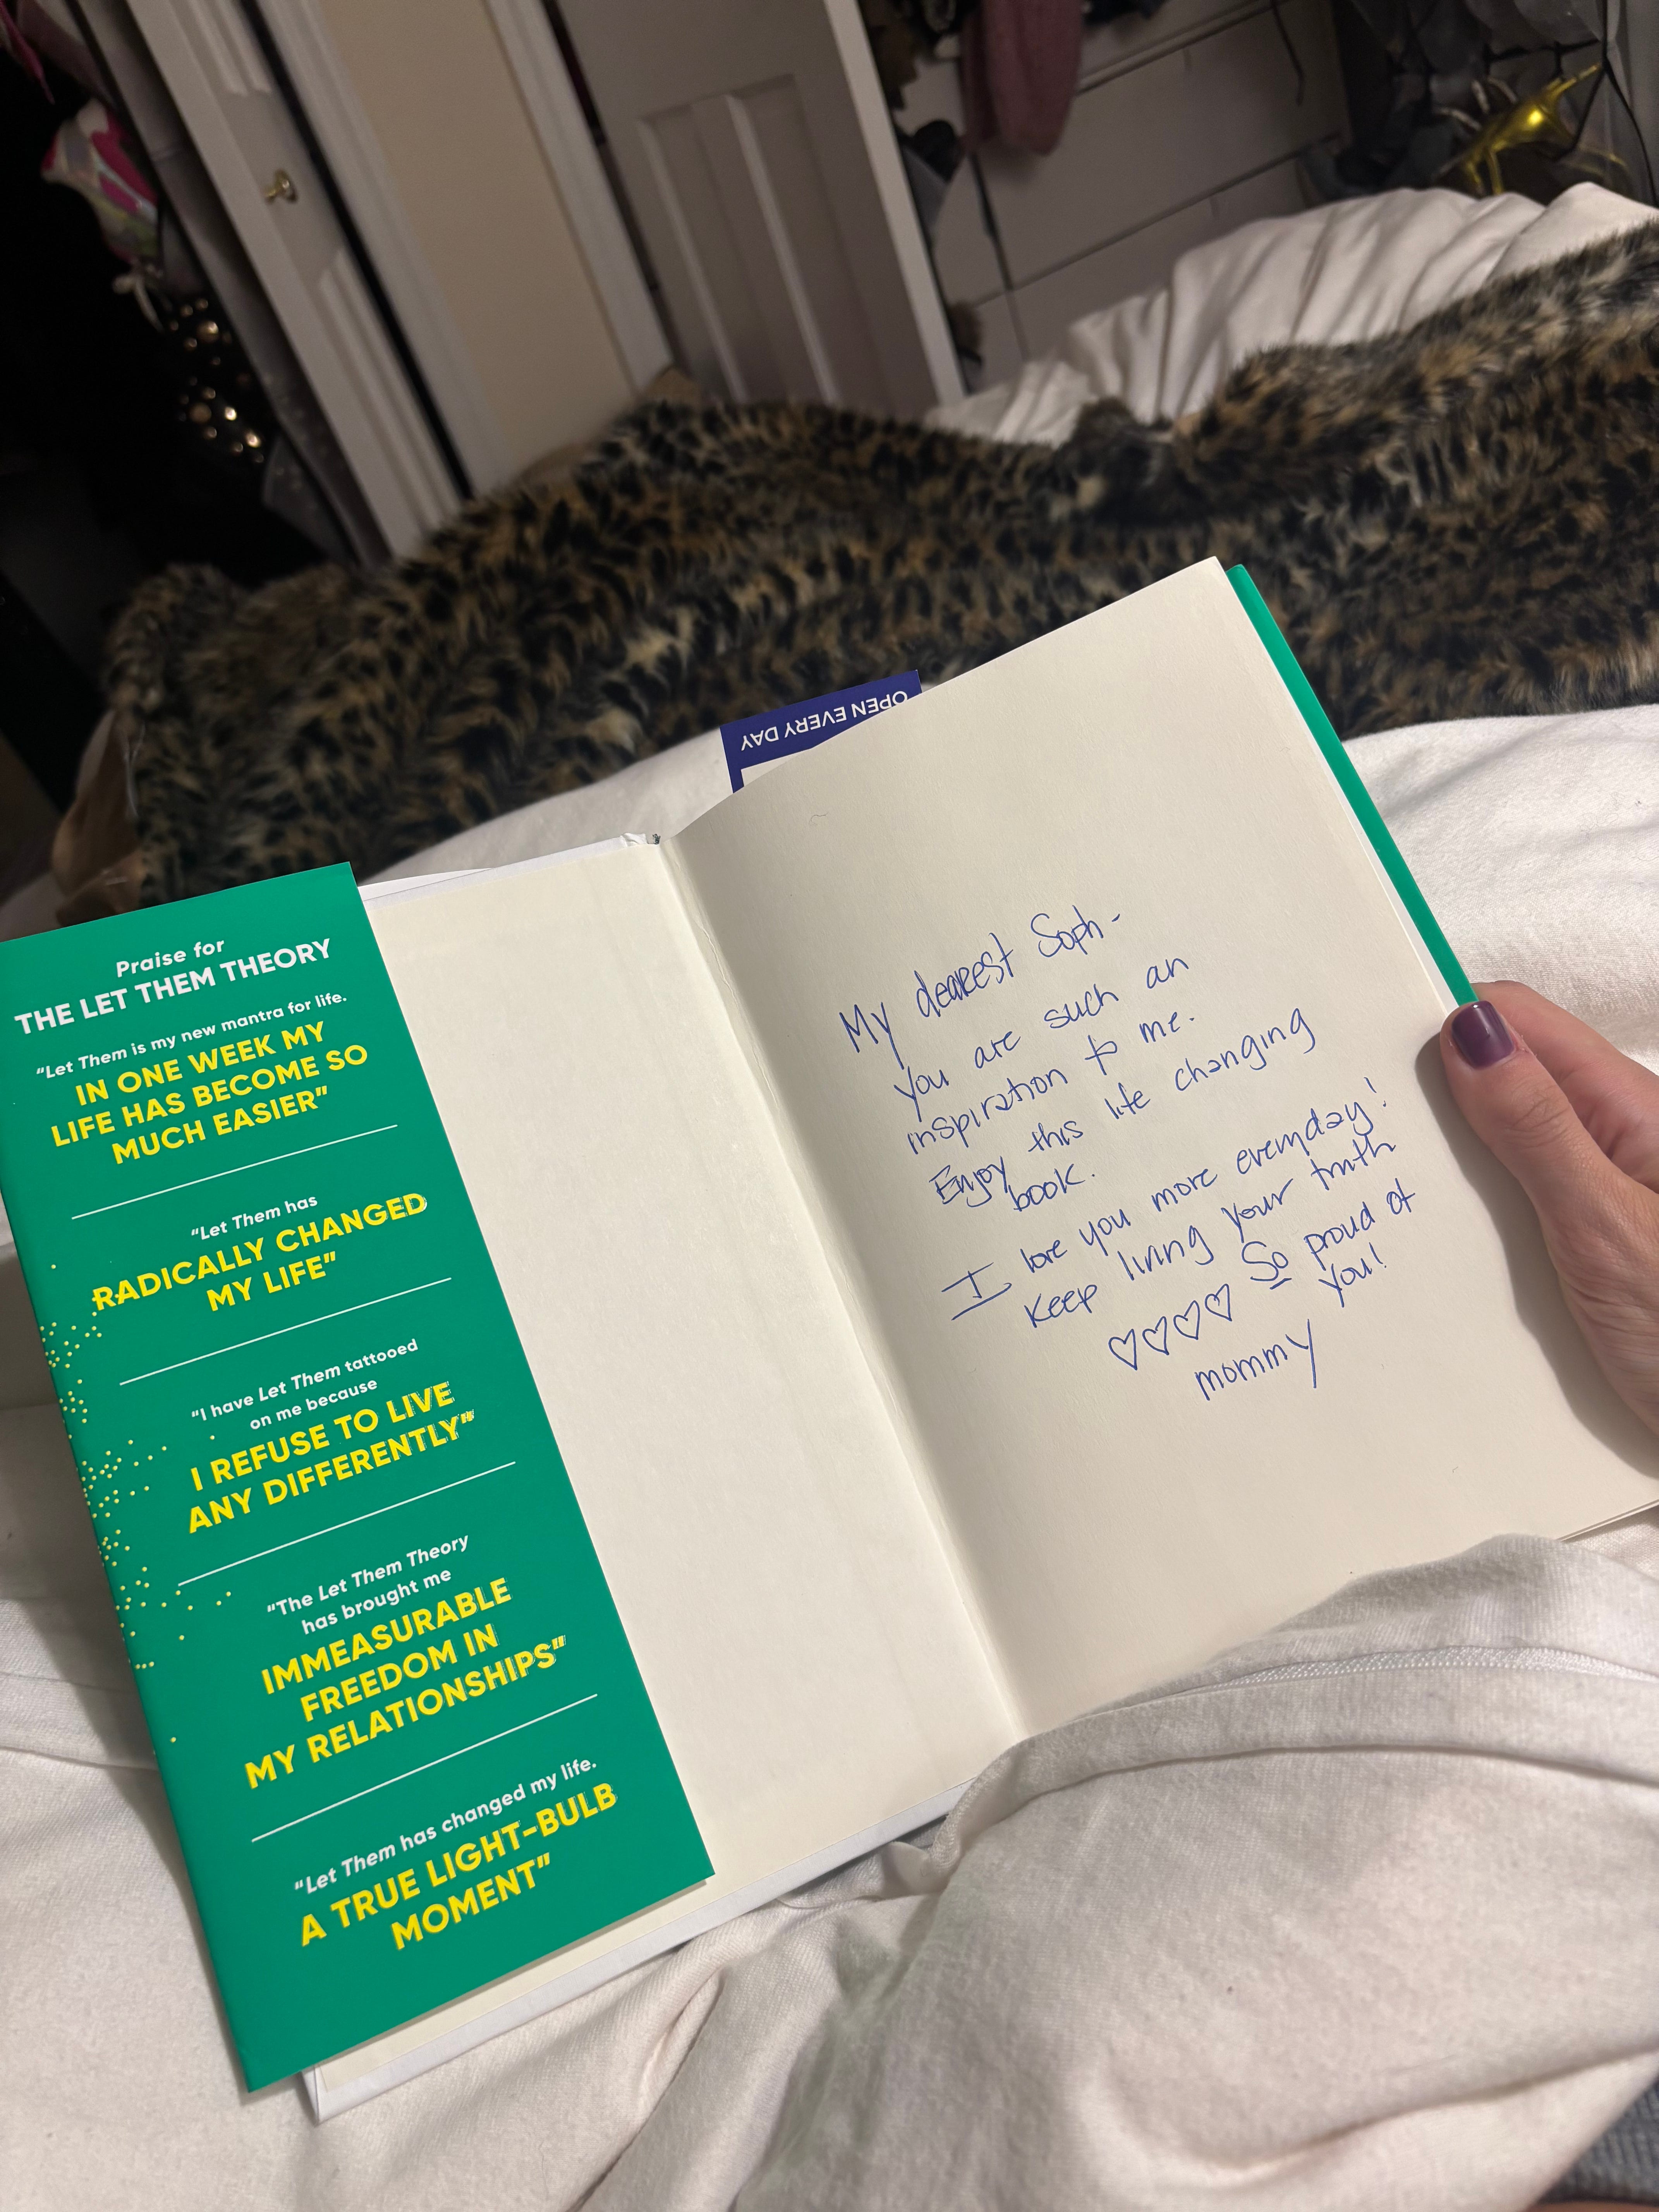 OPEN EVERY DAY
Praise for
THE LET THEM THEORY
“Let Them is my new mantra for life.
IN ONE WEEK MY
LIFE HAS BECOME SO
MUCH EASIER”
“Let Them has
RADICALLY CHANGED
MY LIFE”
“I have Let Them tattooed
on me because
I REFUSE TO LIVE
ANY DIFFERENTLY”
“The Let Them Theory
has brought me
IMMEASURABLE
FREEDOM IN
MY RELATIONSHIPS”
“Let Them has changed my life.
A TRUE LIGHT-BULB
MOMENT”
My dearest Soph -
You are such an
inspiration to me.
Enjoy this life changing
book.
I love you more everyday!
Keep living your truth
♡♡♡♡ So proud of
you!
mommy